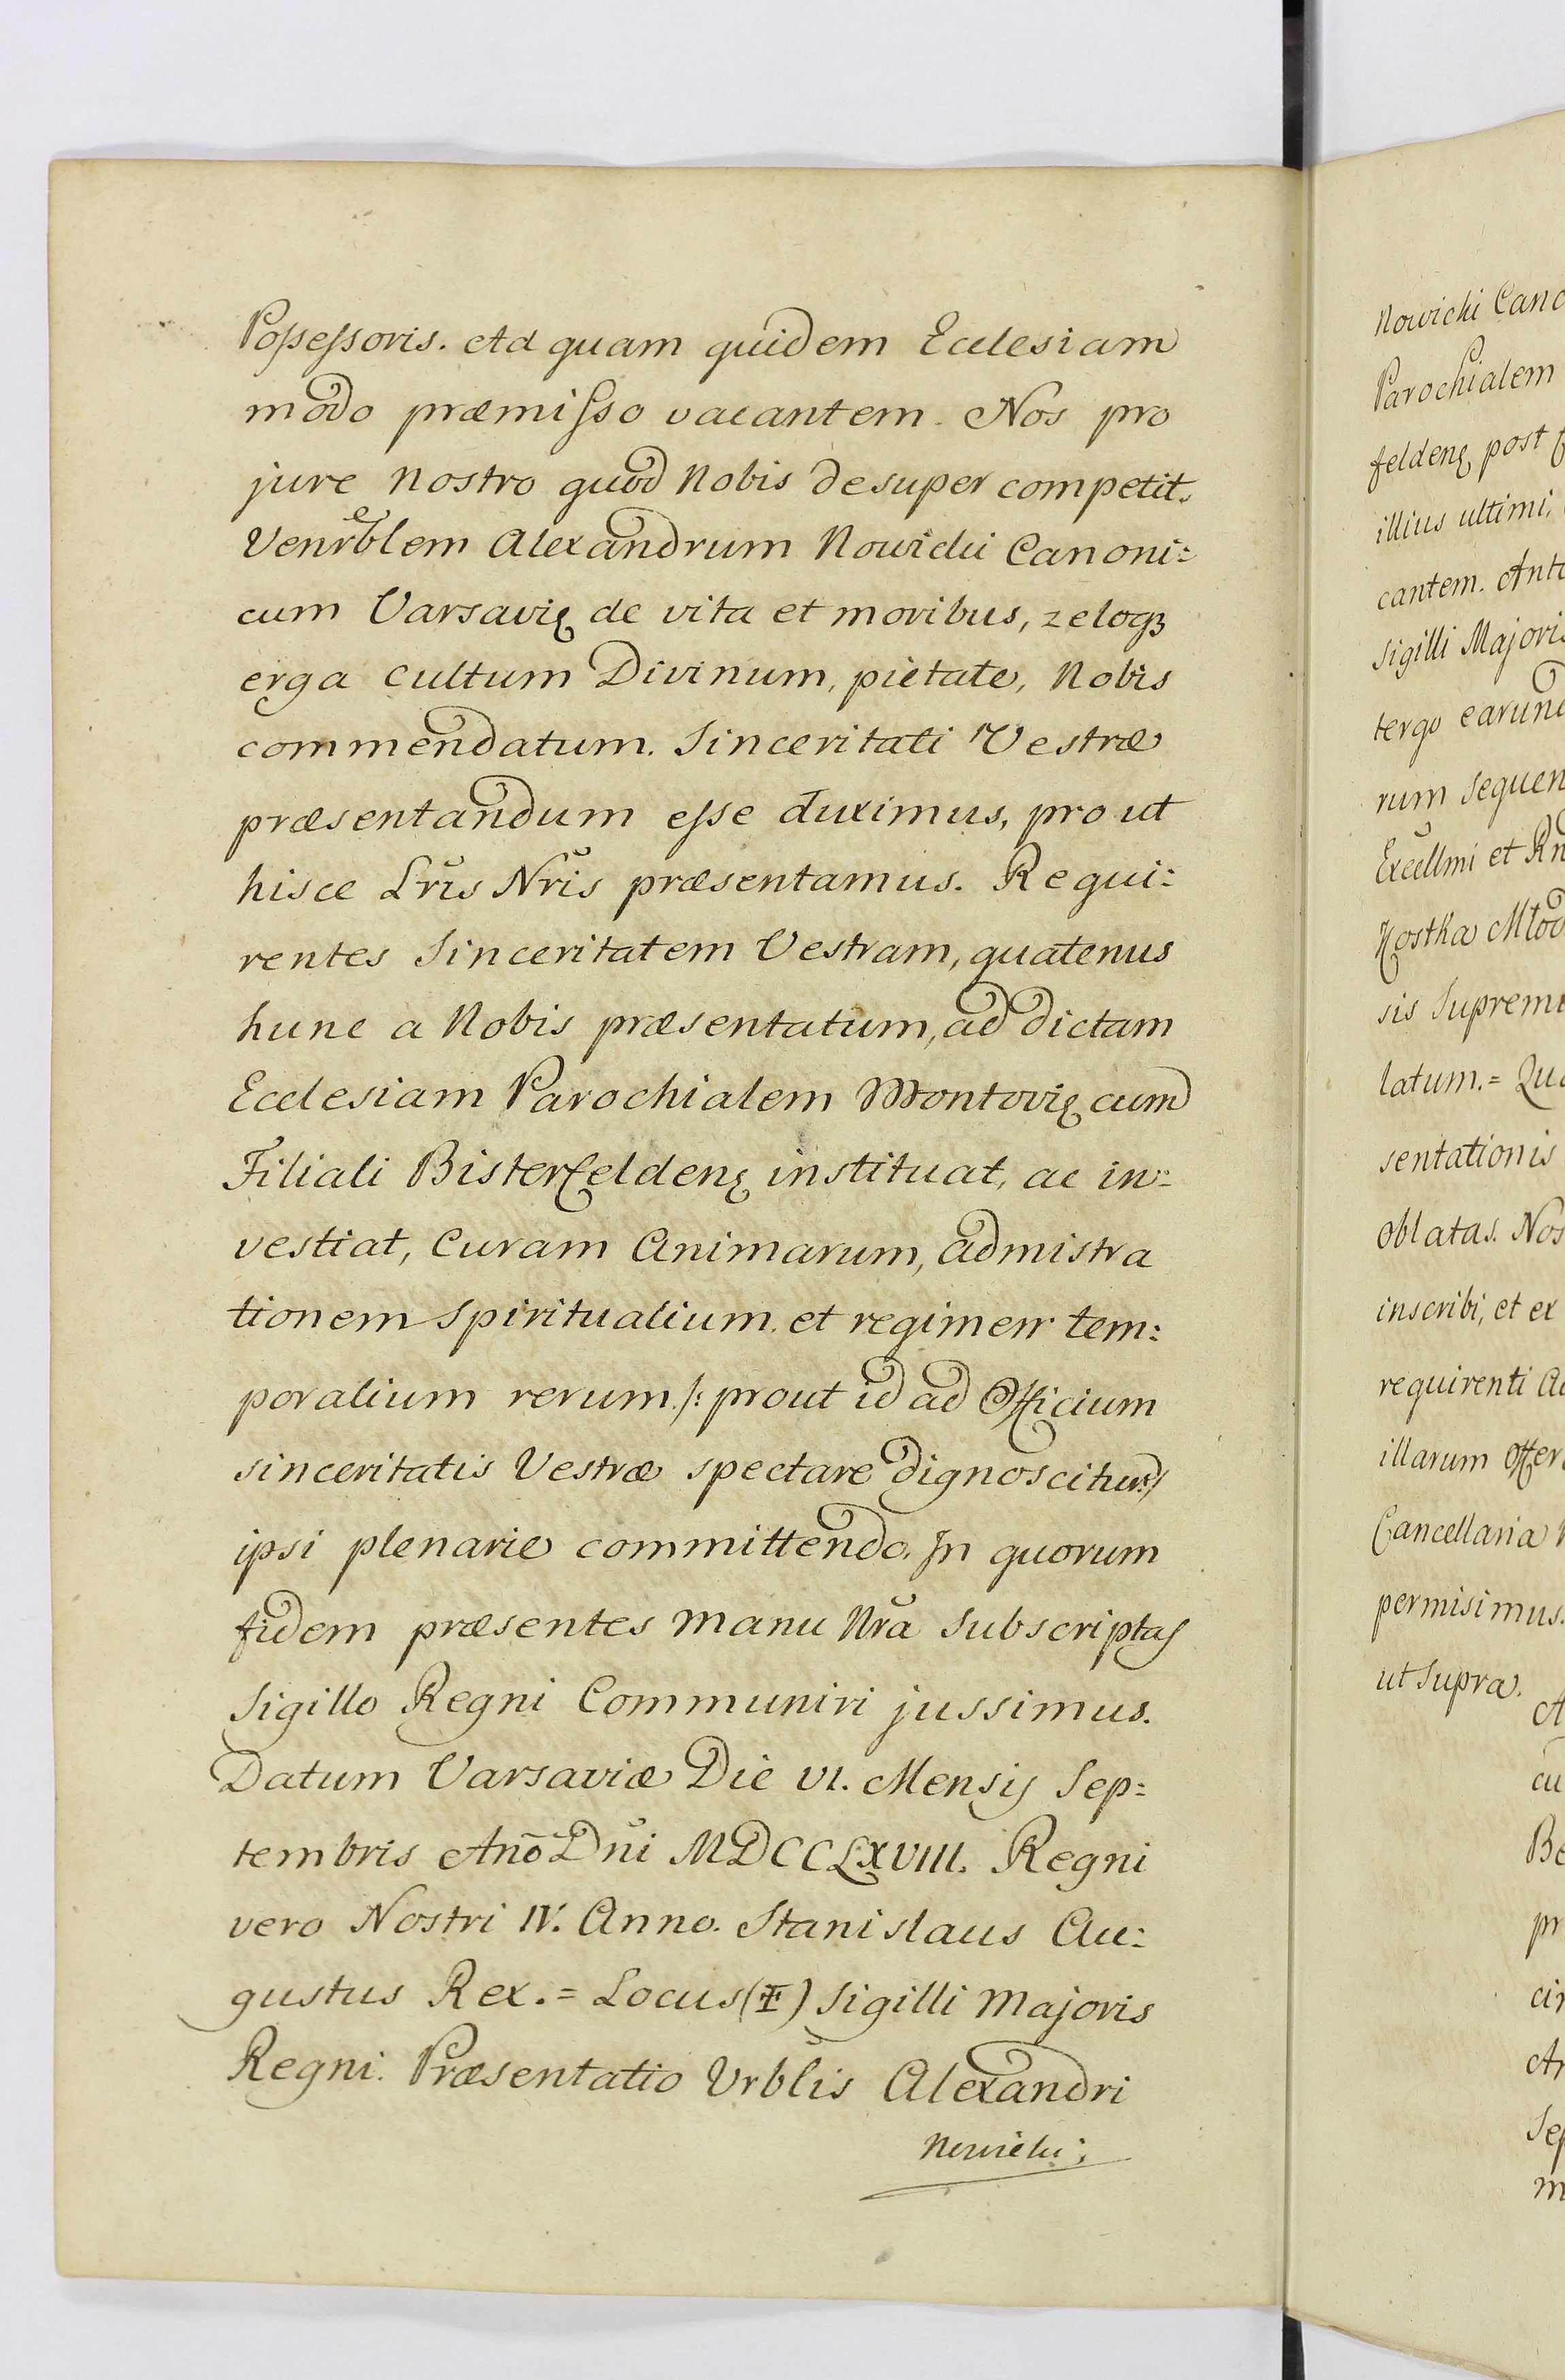 Possessoris. Ad quam quidem Ecclesiam
modo præmisso vacantem. Nos pro
jure nostro quod Nobis desuper competit.
Venrblem Alexandrum Nowicki Canoni:
cum Varsavię de vita et moribus, zeloqꝫ
erga cultum Divinum, pietate, Nobis
commendatum. Sinceritati Vestræ
præsentandum esse duximus, pro ut
hisce Lris Nris præsentamus. Requi:
rentes Sinceritatem Vestram, quatenus
hunc a Nobis præsentatum, ad dictam
Ecclesiam Parochialem Montovię cum
Filiali Bisterfeldenę instituat, ac in:
vestiat, Curam Animarum, admistra
tionem Spiritualium et regimen tem:
poralium rerum /: prout id ad Officium
sinceritatis Vestræ spectare dignoscitur :/
ipsi plenarie committendo. In quorum
fidem præsentes manu Nrã Subscriptas
Sigillo Regni Communiri jussimus.
Datum Varsaviæ Die VI. Mensis Sep:
tembris Anõ Dni MDCCLXVIII. Regni
vero Nostri IV. Anno. Stanislaus Au:
gustus Rex. = Locus (‡) Sigilli Majoris
Regni. Præsentatio Vrblis Alexandri
Nowicki:
Nowicki Cano
Parochialem
feldenę post
illius ultimi,
cantem. Ant
Sigilli Majoris
tergo earund
rum Sequen
Excellmi et Rn
Kostka Młod
sis Supreme
latum. = Qua
sentationis
oblatas. Nos
inscribi, et ex
requirenti Ac
illarum Offer
Cancellaria
permisimus.
ut Supra.
A
cu
Be
pr
cir
Ar
Sep
m